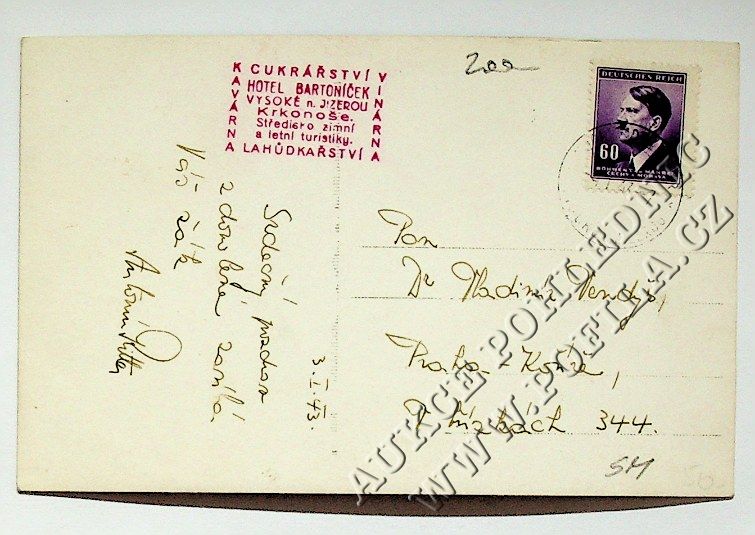 200
KAVÁRNA
CUKRÁŘSTVÍ
VINÁRNA
HOTEL BARTONÍČEK
VYSOKÉ n. JIZEROU
Krkonoše.
Středisko zimní
a letní turistiky.
LAHŮDKÁŘSTVÍ
DEUTSCHES REICH
60
BÖHMEN u. MÄHREN
ČECHY a MORAVA
3. I. 43.
Srdečný pozdrav
z dovolené zasílá
Váš žák
Antonín
Pan
Dr Vladimír
Praha - Košíře,
344.
SM
50
AUKCE POHLEDNIC
WWW.POETIKA.CZ